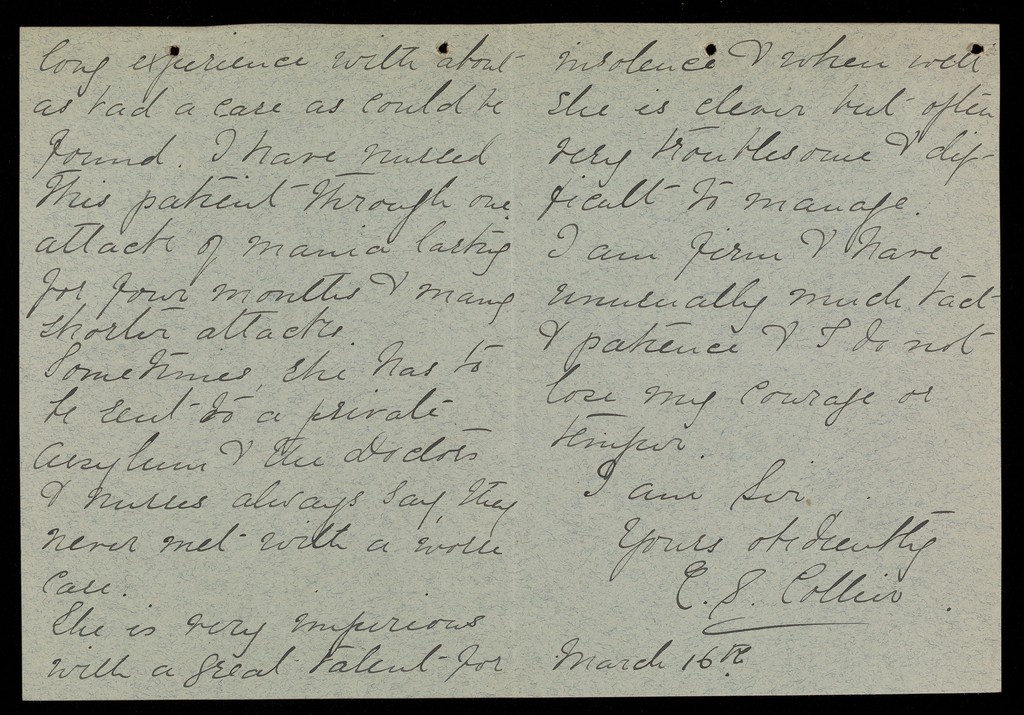 long experience with about
as bad a case as could be
found. I have nursed
this patient through one
attack of mania lasting
for four months & many
shorter attacks.
Sometimes, she has to
be sent to a private
Assylum & the Doctors
& nurses always say, they
never met with a worse
case.
She is very imperious
with a great talent for
insolence & when well
she is clever but often
very troublesome & dif-
ficult to manage.
I am firm & have
unusually much tact
& patience & I do not
lose my courage or
temper.
I am Sir,
Yours obediently
E. S. Collier.
March 16th